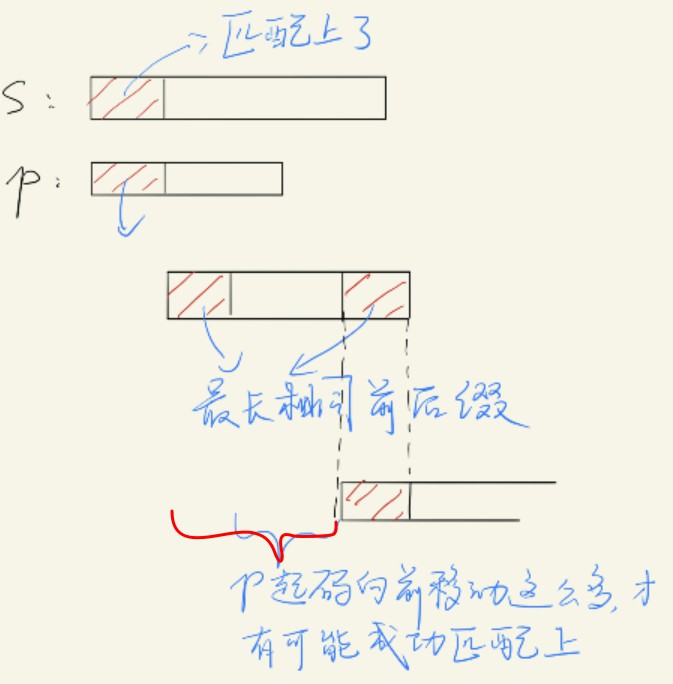 匹配上了
S:
p:
最长相同前后缀
P起码向前移动这么多,才
有可能成功匹配上